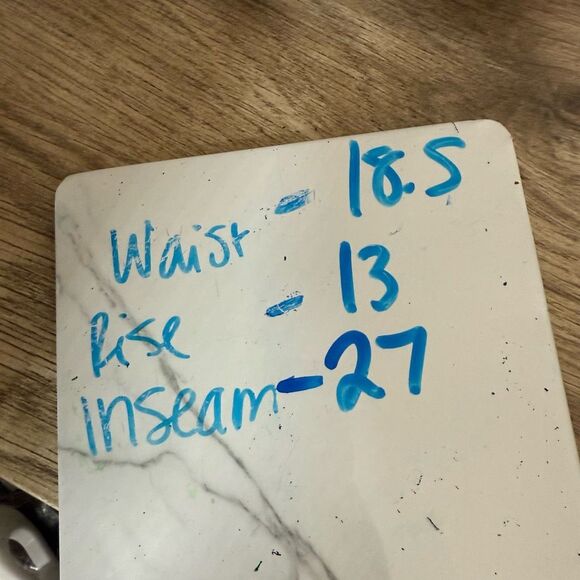 Waist - 18.5
Rise - 13
inseam - 27